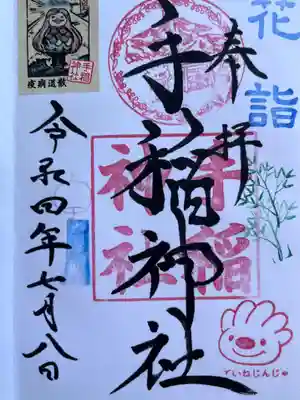 花詣
奉拝
手稲神社
手稲
神社
令和四年七月八日
手稲
神社
疫病退散
ていねじんじゃ